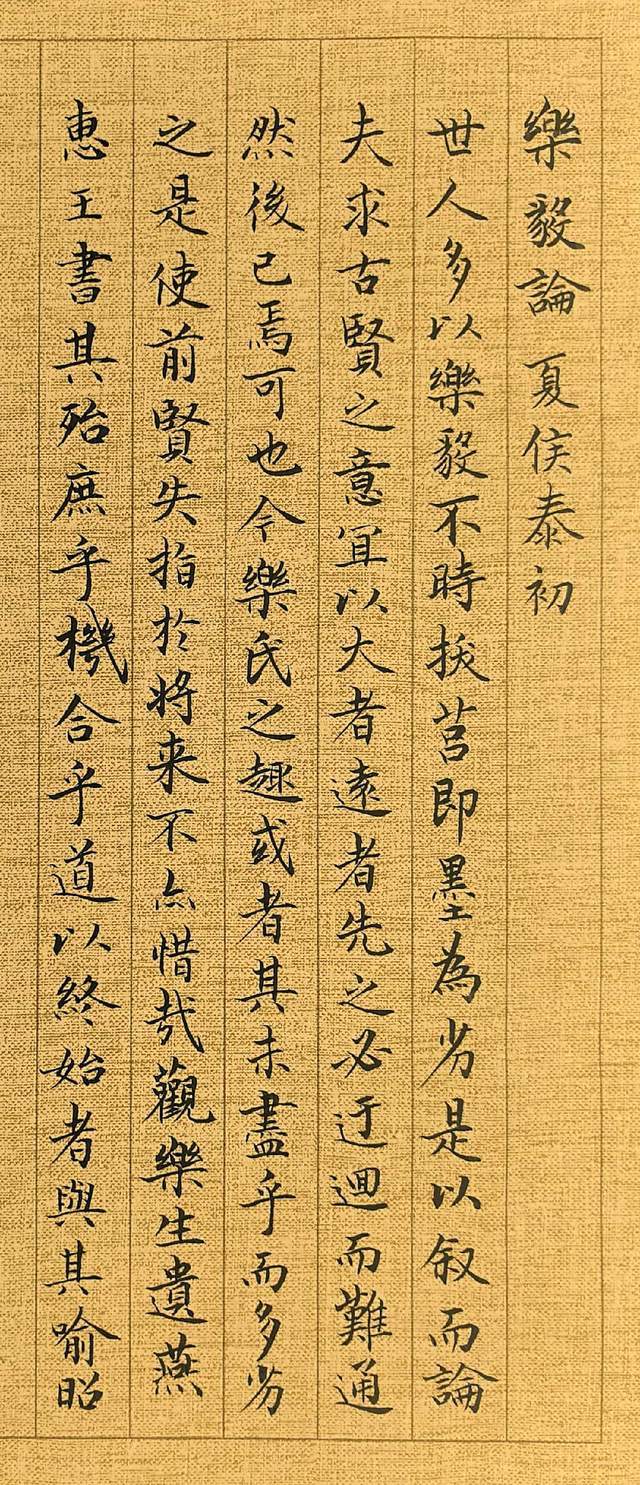 樂毅論 夏侯泰初
世人多以樂毅不時拔莒即墨為劣是以叙而論
夫求古賢之意宜以大者遠者先之必迂迴而難通
然後已焉可也今樂氏之趣或者其未盡乎而多劣
之是使前賢失指於將来不亦惜哉觀樂生遺燕
惠王書其殆庶乎機合乎道以終始者與其喻昭